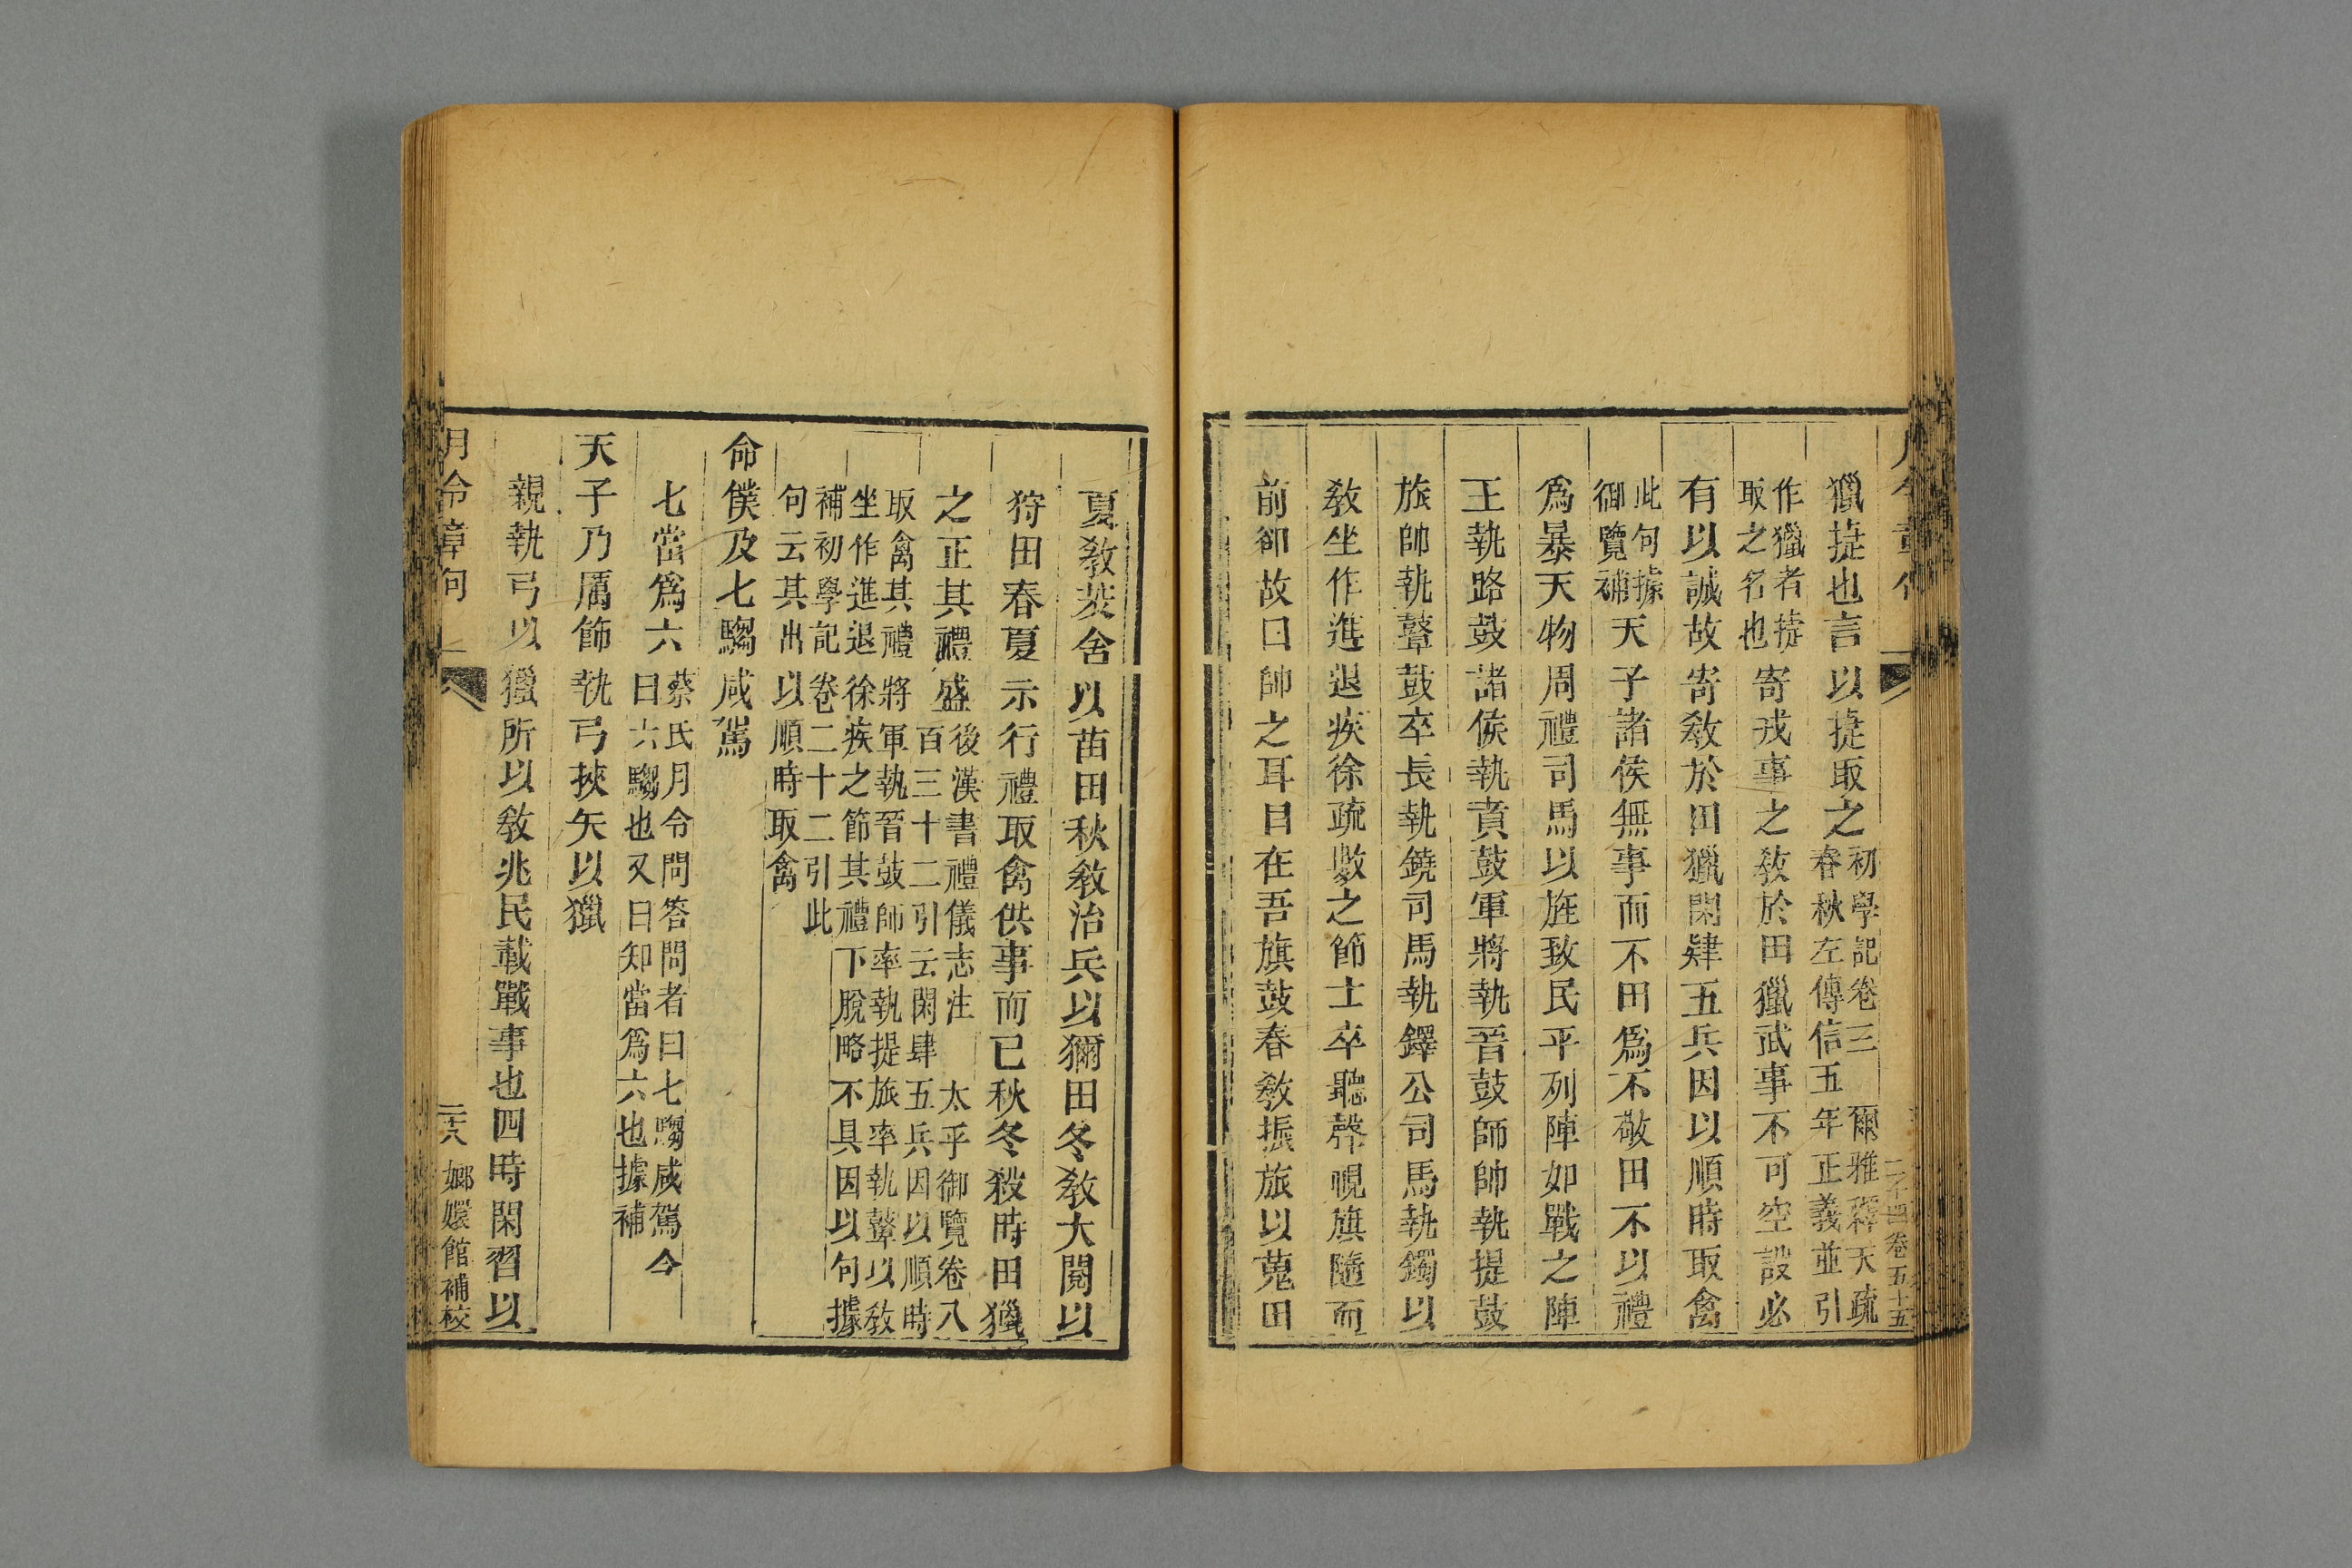 獵捷也言以捷取之初學記卷三 爾雅釋天疏
春秋左傳信五年正義並引
作獵者捷
取之名也寄戎事之教於田獵武事不可空設必
有以誠故寄教於田獵閑肄五兵因以順時取禽
此句據
御覽補天子諸侯無事而不田爲不敬田不以禮
爲暴天物周禮司馬以旌致民平列陣如戰之陣
王執路鼓諸侯執賁鼓軍將執晉鼓師帥執提鼓
旅帥執鼙鼓卒長執鐃司馬執鐸公司馬執鐲以
教坐作進退疾徐疏數之節士卒聽聲視旗隨而
前卻故曰師之耳目在吾旗鼓春教振旅以蒐田
夏教茇舍以苗田秋教治兵以獮田冬教大閱以
狩田春夏示行禮取禽供事而已秋冬殺時田獵
之正其禮盛後漢書禮儀志注 太平御覽卷八
百三十二引云閑肆五兵因以順時
取禽其禮將軍執晉鼓師率執提旅率執鼙以教
坐作進退徐疾之節其禮下脫略不具因以句據
補初學記卷二十二引此
句云其出以順時取禽
命僕及七騶咸駕
七當爲六蔡氏月令問答問者曰七騶咸駕今
曰六騶也又曰知當爲六也據補
天子乃厲飾執弓挾矢以獵
親執弓以獵所以教兆民載戰事也四時閑習以
月令章句 二十八 嫏嬛館補校